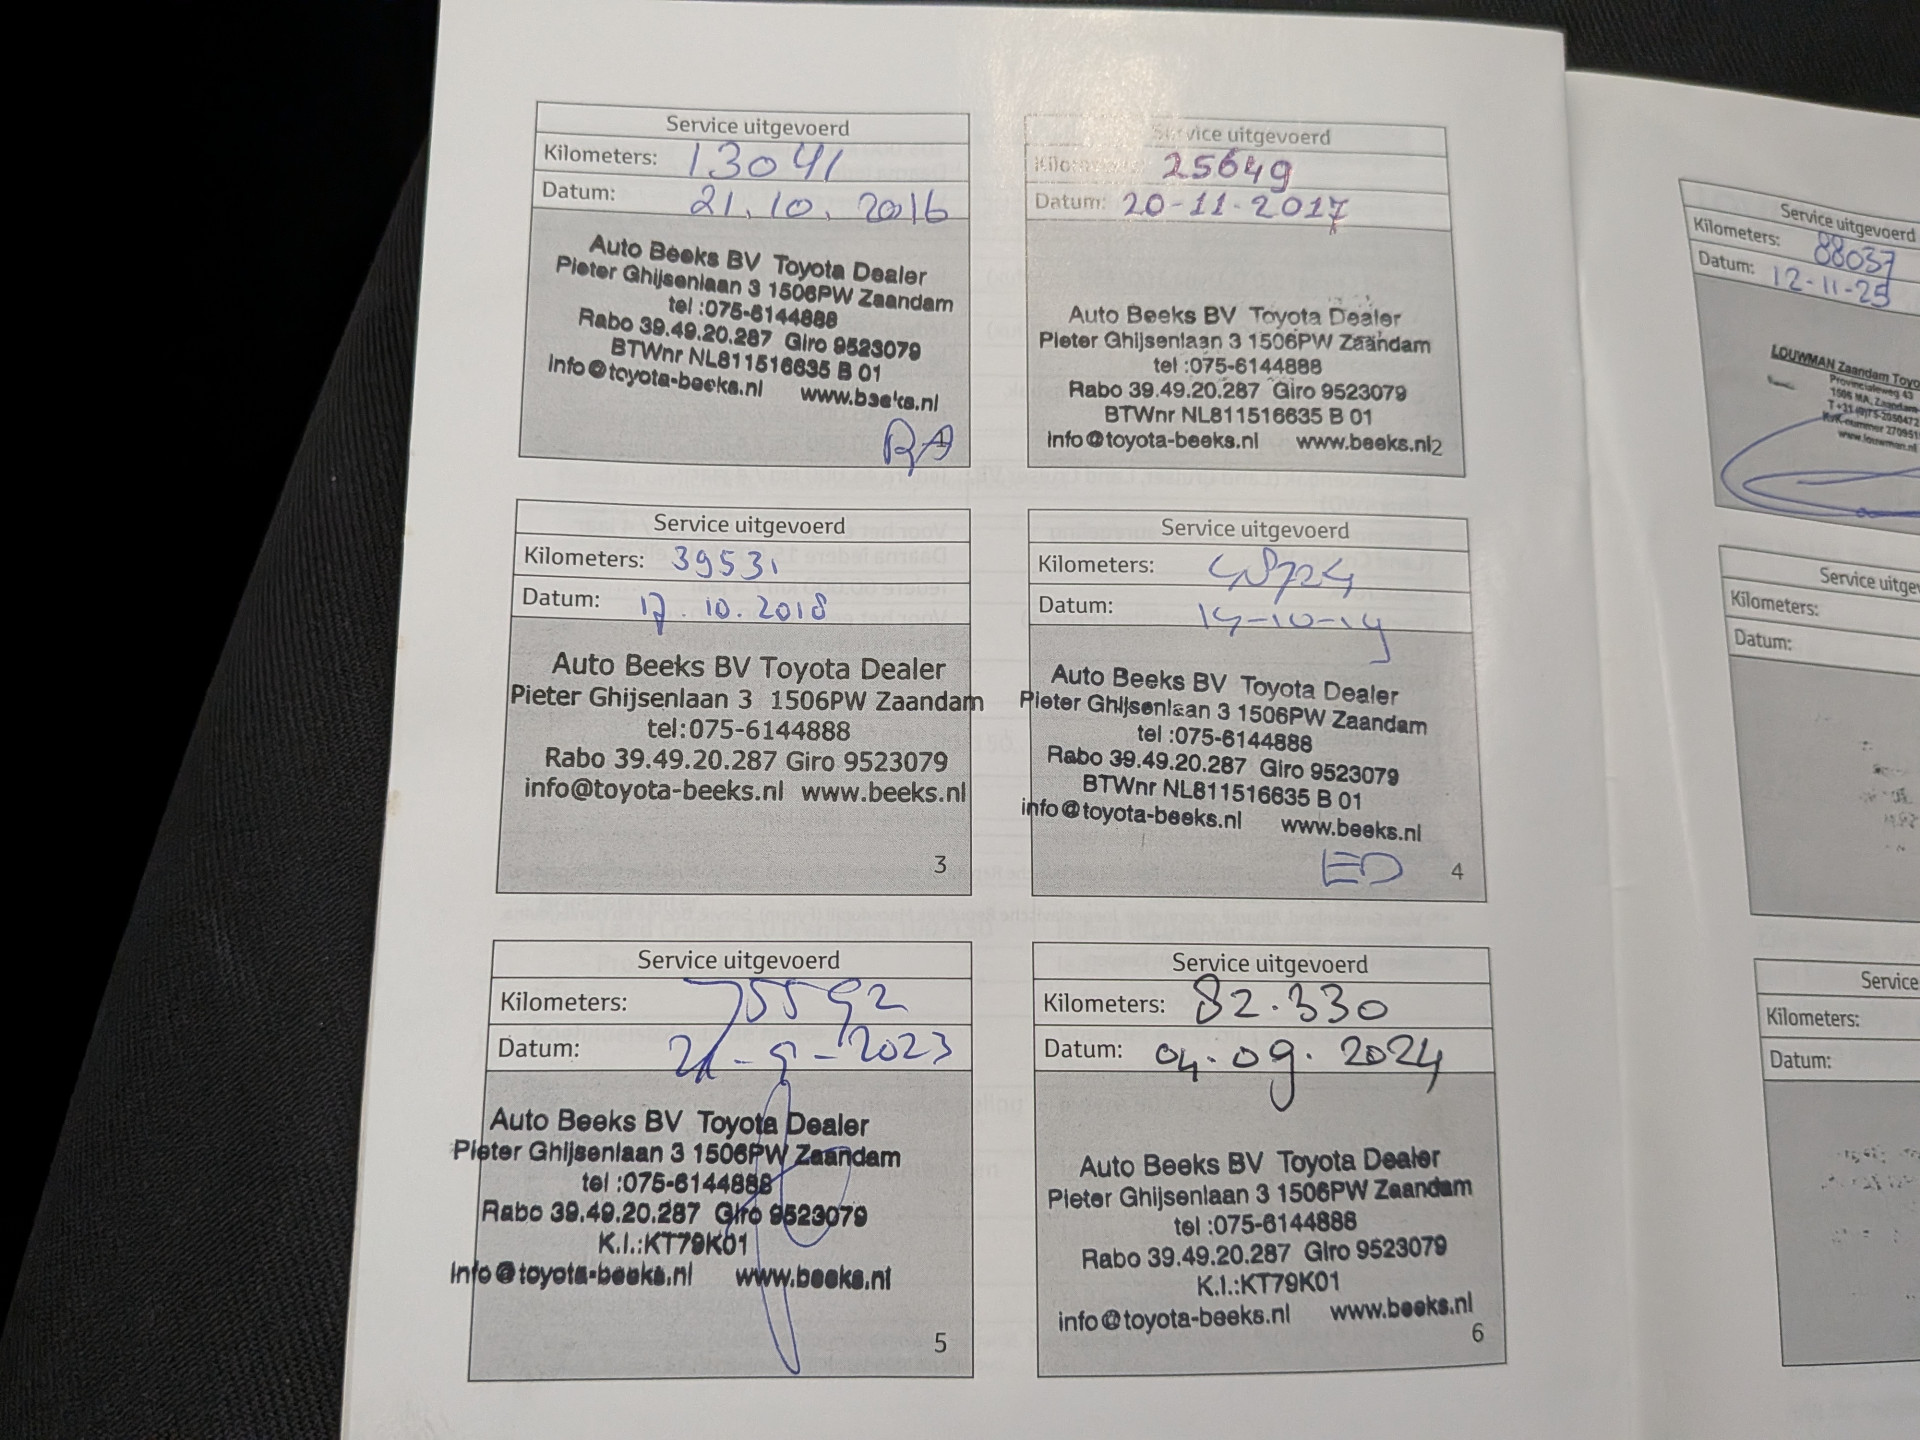 Service uitgevoerd
Kilometers: 13041
Datum: 21.10.2016
Auto Beeks BV Toyota Dealer
Pieter Ghijsenlaan 3 1506PW Zaandam
tel :075-6144888
Rabo 39.49.20.287 Giro 9523079
BTWnr NL811516635 B 01
info@toyota-beeks.nl www.beeks.nl
RA
Service uitgevoerd
Kilometers: 25649
Datum: 20-11-2017
Auto Beeks BV Toyota Dealer
Pieter Ghijsenlaan 3 1506PW Zaandam
tel :075-6144888
Rabo 39.49.20.287 Giro 9523079
BTWnr NL811516635 B 01
info@toyota-beeks.nl www.beeks.nl
2
Service uitgevoerd
Kilometers: 39531
Datum: 17.10.2018
Auto Beeks BV Toyota Dealer
Pieter Ghijsenlaan 3 1506PW Zaandam
tel:075-6144888
Rabo 39.49.20.287 Giro 9523079
info@toyota-beeks.nl www.beeks.nl
3
Service uitgevoerd
Kilometers:
Datum: 14-10-19
Auto Beeks BV Toyota Dealer
Pieter Ghijsenlaan 3 1506PW Zaandam
tel :075-6144888
Rabo 39.49.20.287 Giro 9523079
BTWnr NL811516635 B 01
info@toyota-beeks.nl www.beeks.nl
ED
4
Service uitgevoerd
Kilometers: 75592
Datum: 21-9-2023
Auto Beeks BV Toyota Dealer
Pieter Ghijsenlaan 3 1506PW Zaandam
tel :075-6144888
Rabo 39.49.20.287 Giro 9523079
K.I.:KT79K01
info@toyota-beeks.nl www.beeks.nl
5
Service uitgevoerd
Kilometers: 82.330
Datum: 04.09.2024
Auto Beeks BV Toyota Dealer
Pieter Ghijsenlaan 3 1506PW Zaandam
tel :075-6144888
Rabo 39.49.20.287 Giro 9523079
K.I.:KT79K01
info@toyota-beeks.nl www.beeks.nl
6
Service uitgevoerd
Kilometers: 88037
Datum: 12-11-25
LOUWMAN Zaandam Toyo
Provincialeweg 43
1506 MA, Zaandam
T +31 (0)75-2050472
KvK-nummer 270951
www.louwman.nl
Service uitgev
Kilometers:
Datum:
Service
Kilometers:
Datum: